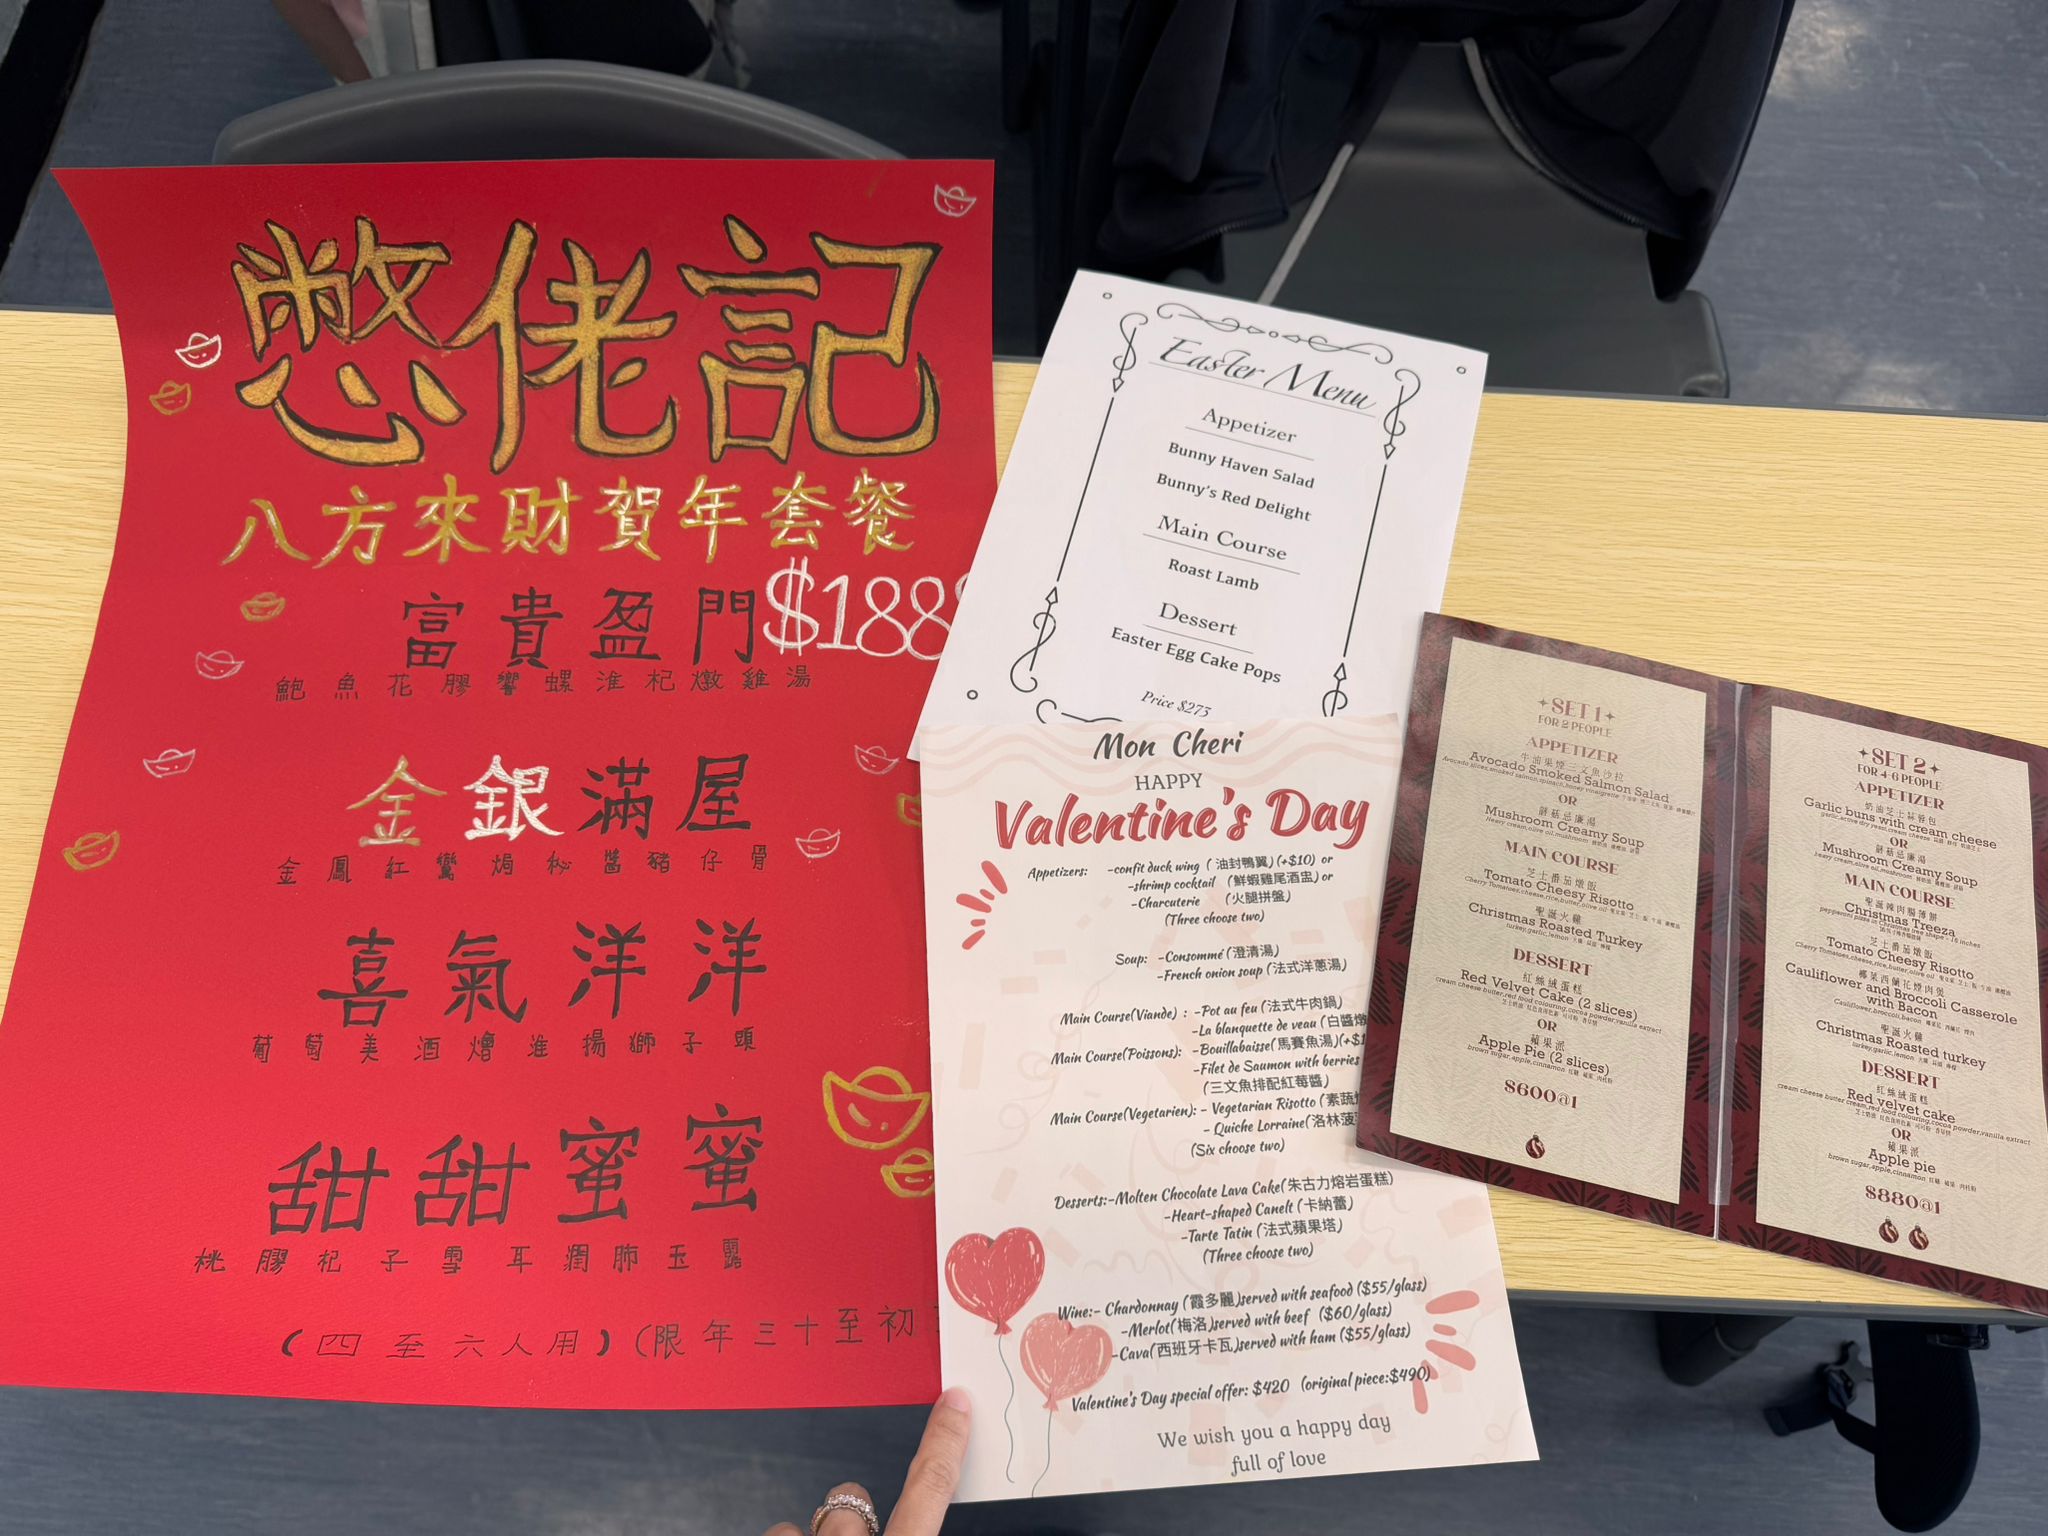 憋佬記
八方來財賀年套餐
富貴盈門 $188
鮑魚花膠響螺淮杞燉雞湯
金銀滿屋
金鳳紅鸞焗秘醬豬仔骨
喜氣洋洋
葡萄美酒燴淮揚獅子頭
甜甜蜜蜜
桃膠杞子雪耳潤肺玉露
(四至六人用)(限年三十至初
Easter Menu
Appetizer
Bunny Haven Salad
Bunny's Red Delight
Main Course
Roast Lamb
Dessert
Easter Egg Cake Pops
Price $273
Mon Cheri
HAPPY
Valentine's Day
Appetizers: -confit duck wing (油封鴨翼)(+$10) or
-shrimp cocktail (鮮蝦雞尾酒盅) or
-Charcuterie (火腿拼盤)
(Three choose two)
Soup: -Consommé (澄清湯)
-French onion soup (法式洋蔥湯)
Main Course(Viande) : -Pot au feu (法式牛肉鍋)
-La blanquette de veau (白醬燉
Main Course(Poissons): -Bouillabaisse(馬賽魚湯)(+$1
-Filet de Saumon with berries
(三文魚排配紅莓醬)
Main Course(Vegetarien): - Vegetarian Risotto (素蔬
- Quiche Lorraine(洛林菠
(Six choose two)
Desserts:-Molten Chocolate Lava Cake(朱古力熔岩蛋糕)
-Heart-shaped Canelt (卡納蕾)
-Tarte Tatin (法式蘋果塔)
(Three choose two)
Wine:- Chardonnay (霞多麗)served with seafood ($55/glass)
-Merlot(梅洛)served with beef ($60/glass)
-Cava(西班牙卡瓦)served with ham ($55/glass)
Valentine's Day special offer: $420 (original piece:$490)
We wish you a happy day
full of love
SET 1
FOR 2 PEOPLE
APPETIZER
牛油果煙三文魚沙拉
Avocado Smoked Salmon Salad
Avocado slices,smoked salmon,spinach,honey vinaigrette
OR
蘑菇忌廉湯
Mushroom Creamy Soup
Heavy cream,olive oil,mushroom
MAIN COURSE
芝士番茄燉飯
Tomato Cheesy Risotto
Cherry Tomatoes,cheese,rice,butter,olive oil
聖誕火雞
Christmas Roasted Turkey
turkey,garlic,lemon 火雞 蒜頭 檸檬
DESSERT
紅絲絨蛋糕
Red Velvet Cake (2 slices)
cream cheese butter,red food colouring,cocoa powder,vanilla extract
OR
蘋果派
Apple Pie (2 slices)
brown sugar,apple,cinnamon 紅糖 蘋果 肉桂粉
$600@1
SET 2
FOR 4-6 PEOPLE
APPETIZER
奶油芝士蒜蓉包
Garlic buns with cream cheese
garlic,active dry yeast,cream cheese
OR
蘑菇忌廉湯
Mushroom Creamy Soup
heavy cream,olive oil,mushroom
MAIN COURSE
聖誕辣肉腸薄餅
Christmas Treeza
pepperoni pizza in Christmas tree shape - 16 inches
芝士番茄燉飯
Tomato Cheesy Risotto
Cherry Tomatoes,cheese,rice,butter,olive oil
椰菜西蘭花煙肉煲
Cauliflower and Broccoli Casserole
with Bacon
Cauliflower,broccoli,bacon 椰菜花 西蘭花 煙肉
聖誕火雞
Christmas Roasted turkey
turkey,garlic,lemon 火雞 蒜頭 檸檬
DESSERT
紅絲絨蛋糕
Red velvet cake
cream cheese butter cream,red food colouring,cocoa powder,vanilla extract
OR
蘋果派
Apple pie
brown sugar,apple,cinnamon 紅糖 蘋果 肉桂粉
$880@1